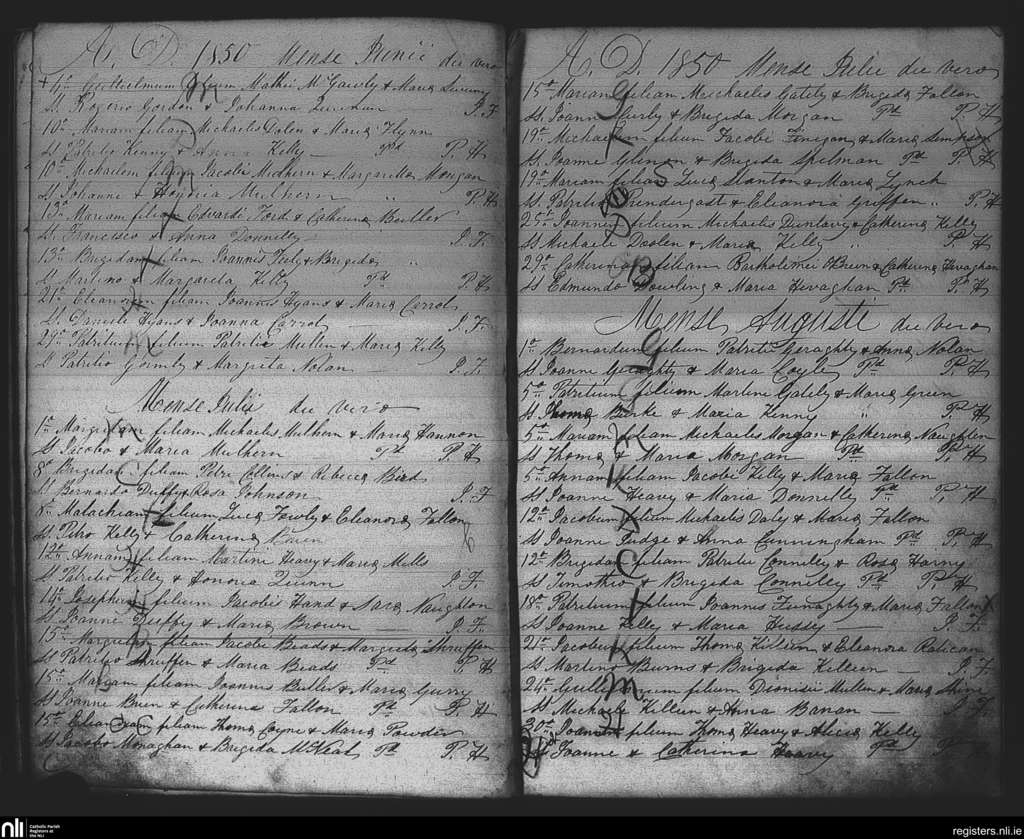 A. D. 1850 Mense Junii die vero
4a Gulielmum filium Mathii McGawly & Maria
Ss Rogerio Gordon & Johanna P. F
10a Mariam filiam Michaelis Dolen & Maria Flynn
Ss Patritio Kenny & Anna Kelly — Pd P. H
10a Michaelem filium Jacobi Mulhern & Margarita Mongan
Ss Johanne & Honoria Mulhern " P. H
13a Mariam filiam Edvardi Ford & Catherina Butler
Ss Francisco & Anna Donnelly P. F.
13a Brigidam filiam Joannis Kelly & Brigida "
Ss Martino & Margarita Kelly Pd P. H
21a Eleanoram filiam Joannis Hyans & Maria Carrol
Ss Daniele Hyans & Joanna Carrol — P. F.
29a Patritium filium Patritii Mullen & Maria Kelly
Ss Patritio Gormly & Margrita Nolan — P. F.
Mense Julii die vero
1a Margritam filiam Michaelis Mulhern & Maria Hannon
Ss Jacobo & Maria Mulhern Pd P. H
8a Brigidam filiam Petri Collins & Rebecca Bird
Ss Bernardo Duffy & Rosa Johnson P. F
8a Malachiam filium Luca Fowly & Eleanora Fallon
Ss Petro Kelly & Catherina
12a Annam filiam Martini Heavy & Maria Mells
Ss Patritio Kelly & Honoria Quinn P. F.
14a Josephum filium Jacobi Hand & Sara Naughton
Ss Joanne Duffy & Maria Brown — P. F.
15a Margritam filiam Jacobi Beads & Margrita Shruffen
Ss Patritio Shruffen & Maria Beads Pd P. H
15a Mariam filiam Joannis Butler & Maria Curry
Ss Joanne Bruen & Catherina Fallon Pd P. H
15a Eleanoram filiam Thoma Coyne & Maria Powder
Ss Jacobo Monaghan & Brigida McHeal Pd P. H
A. D. 1850 Mense Julii die vero
15a Mariam filiam Michaelis Gately & Brigida Fallon
Ss Joanne Curly & Brigida Morgan Pd P. H
19a Michaelem filium Jacobi Finegan & Maria Simpson
Ss Joanne Glenon & Brigida Spelman Pd P. H
19a Mariam filiam Luca Stanton & Maria Lynch
Ss Patritio Prendergast & Eleanora Griffen " P. H
25a Joannem filium Michaelis Dunlavy & Catherina Kelly
Ss Michaele Doolen & Maria Kelly " P. H
29a Catherinam filiam Bartholomei OBrien & Catherina Hevaghan
Ss Edmundo Dowling & Maria Hevaghan Pd P. H
Mense Augusti die vero
1a Bernardum filium Patritii Geraghty & Anna Nolan
Ss Joanne Geraghty & Maria Coyle Pd P. H
5a Patritium filium Martini Gately & Maria Green
Ss Thoma Burke & Maria Kenny " P. H
5a Mariam filiam Michaelis Morgan & Catherina Naughten
Ss Thoma & Maria Morgan Pd P. H
5a Annam filiam Jacobi Kelly & Maria Fallon
Ss Joanne Heavy & Maria Donnelly Pd P. H
12a Jacobum filium Michaelis Daley & Maria Fallon
Ss Joanne Judge & Anna Cunningham Pd P. H
12a Brigidam filiam Patritii Connelley & Rosa Harny
Ss Timotheo & Brigida Connelley Pd P. H
18a Patritium filium Joannis Finaghty & Maria Fallon
Ss Joanne Kelly & Maria Hussey — P. F.
21a Jacobum filium Thoma Killeen & Eleanora Ratican
Ss Martino Burns & Brigida Killeen P. F
24a filium Dionisii Mullen & Maria
Ss Michaele Killeen & Anna Banan — P. F
30a Joannem filium Thoma Heavy & Alicia Kelly
Ss Joanne & Catherina Heavy Pd P. H
nli Catholic Parish
Registers at
the NLI
registers.nli.ie